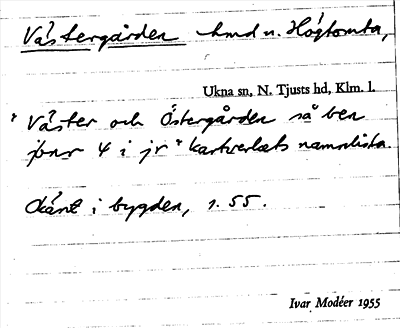 Västergården hmd u. Högtomta,
Ukna sn, N. Tjusts hd, Klm. l.
"Väster och Östergården så ben
jpnr 4 i jr" kartverkets namnlista.
Känt i bygden, s. 55.
Ivar Modéer 1955